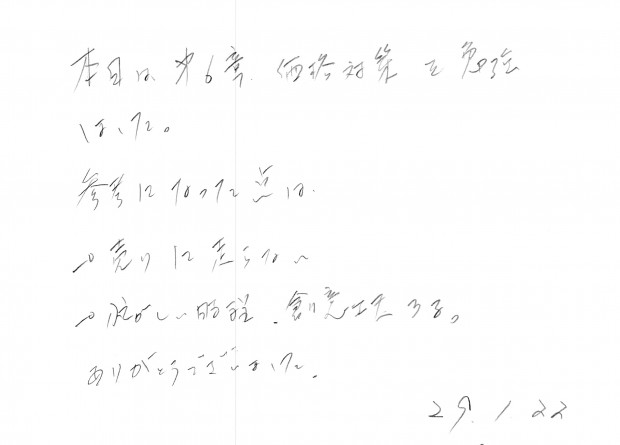 本日は 第6章. 価格対策 を勉強
しました。
参考になった点は.
→売りに走らない
→忙しい時程、創意工夫する。
ありがとうございました.
29. 1 22